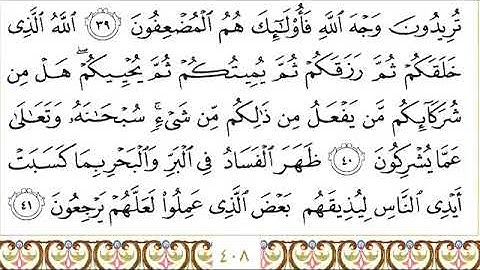 تُرِيدُونَ وَجْهَ ٱللَّهِ فَأُو۟لَـٰٓئِكَ هُمُ ٱلْمُضْعِفُونَ ﴿٣٩﴾ ٱللَّهُ ٱلَّذِى
خَلَقَكُمْ ثُمَّ رَزَقَكُمْ ثُمَّ يُمِيتُكُمْ ثُمَّ يُحْيِيكُمْ ۖ هَلْ مِن
شُرَكَآئِكُم مَّن يَفْعَلُ مِن ذَٰلِكُم مِّن شَىْءٍ ۚ سُبْحَـٰنَهُۥ وَتَعَـٰلَىٰ
عَمَّا يُشْرِكُونَ ﴿٤٠﴾ ظَهَرَ ٱلْفَسَادُ فِى ٱلْبَرِّ وَٱلْبَحْرِ بِمَا كَسَبَتْ
أَيْدِى ٱلنَّاسِ لِيُذِيقَهُم بَعْضَ ٱلَّذِى عَمِلُوا۟ لَعَلَّهُمْ يَرْجِعُونَ ﴿٤١﴾
٤٠٨